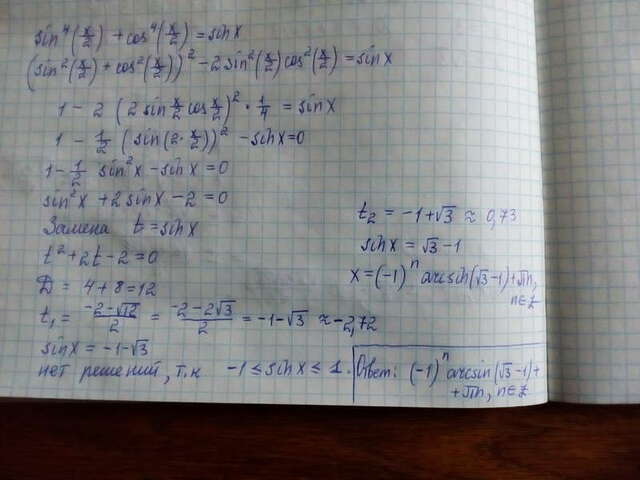 sin⁴(x/2) + cos⁴(x/2) = sinx
(sin²(x/2) + cos²(x/2))² - 2sin²(x/2)cos²(x/2) = sinx
1 - 2 (2 sin x/2 cos x/2)² · 1/4 = sinx
1 - 1/2 (sin(2 · x/2))² - sinx = 0
1 - 1/2 sin²x - sinx = 0
sin²x + 2sinx - 2 = 0
Замена t = sinx
t² + 2t - 2 = 0
D = 4 + 8 = 12
t₁ = (-2 - √12)/2 = (-2 - 2√3)/2 = -1 - √3 ≈ -2,72
sinx = -1 - √3
нет решений, т.к -1 ≤ sinx ≤ 1.
t₂ = -1 + √3 ≈ 0,73
sinx = √3 - 1
x = (-1)ⁿ arcsin(√3 - 1) + πn,
n∈Z
Ответ: (-1)ⁿ arcsin(√3 - 1) +
+ πn, n∈Z